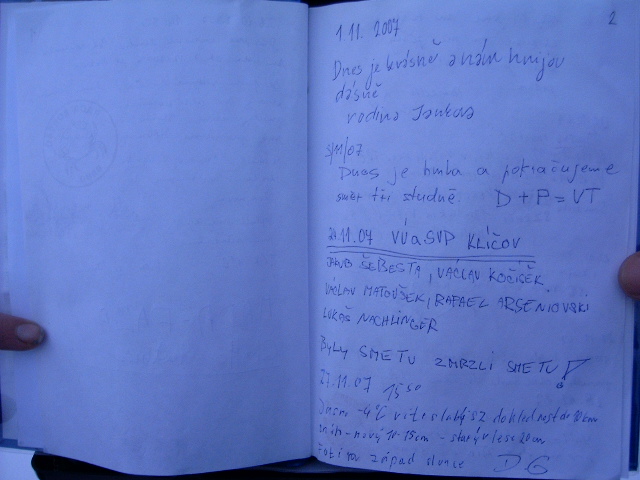 2
1.11. 2007
Dnes je krásně a nám hnijou
dásně
rodina Jankova
5/11/07
Dnes je hmla a pokračujeme
směr tři studně. D + P = VT
11.07 VÚ a SVP KLÍČOV
JAKUB ŠEBESTA, VÁCLAV KOČÍŠEK
VÁCLAV MATOUŠEK, RAFAEL ARSENIOVSKI
LUKÁŠ NACHLINGER
BYLY SME TU ZMRZLI SME TU!
27.11.07 15 50
Jasno -4°C vítr slabý SZ dohlednost do km
sníh - nový 10-15cm - starý v lese 20cm
Fotím západ slunce DG